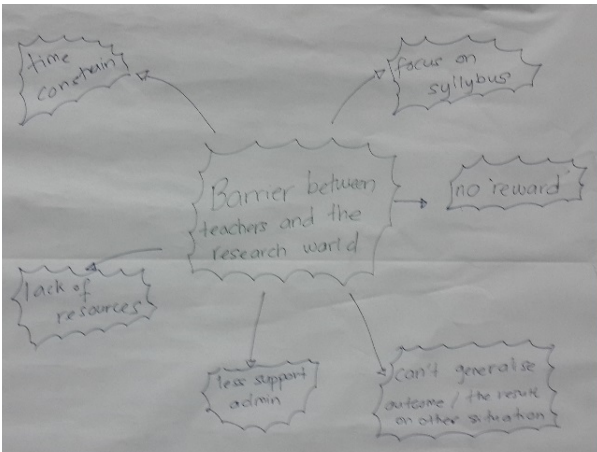 time
constrain
focus on
syllybus
Barrier between
teachers and the
research world
no 'reward'
lack of
resources
less support
admin
can't generalise
outcome / the result
on other situation